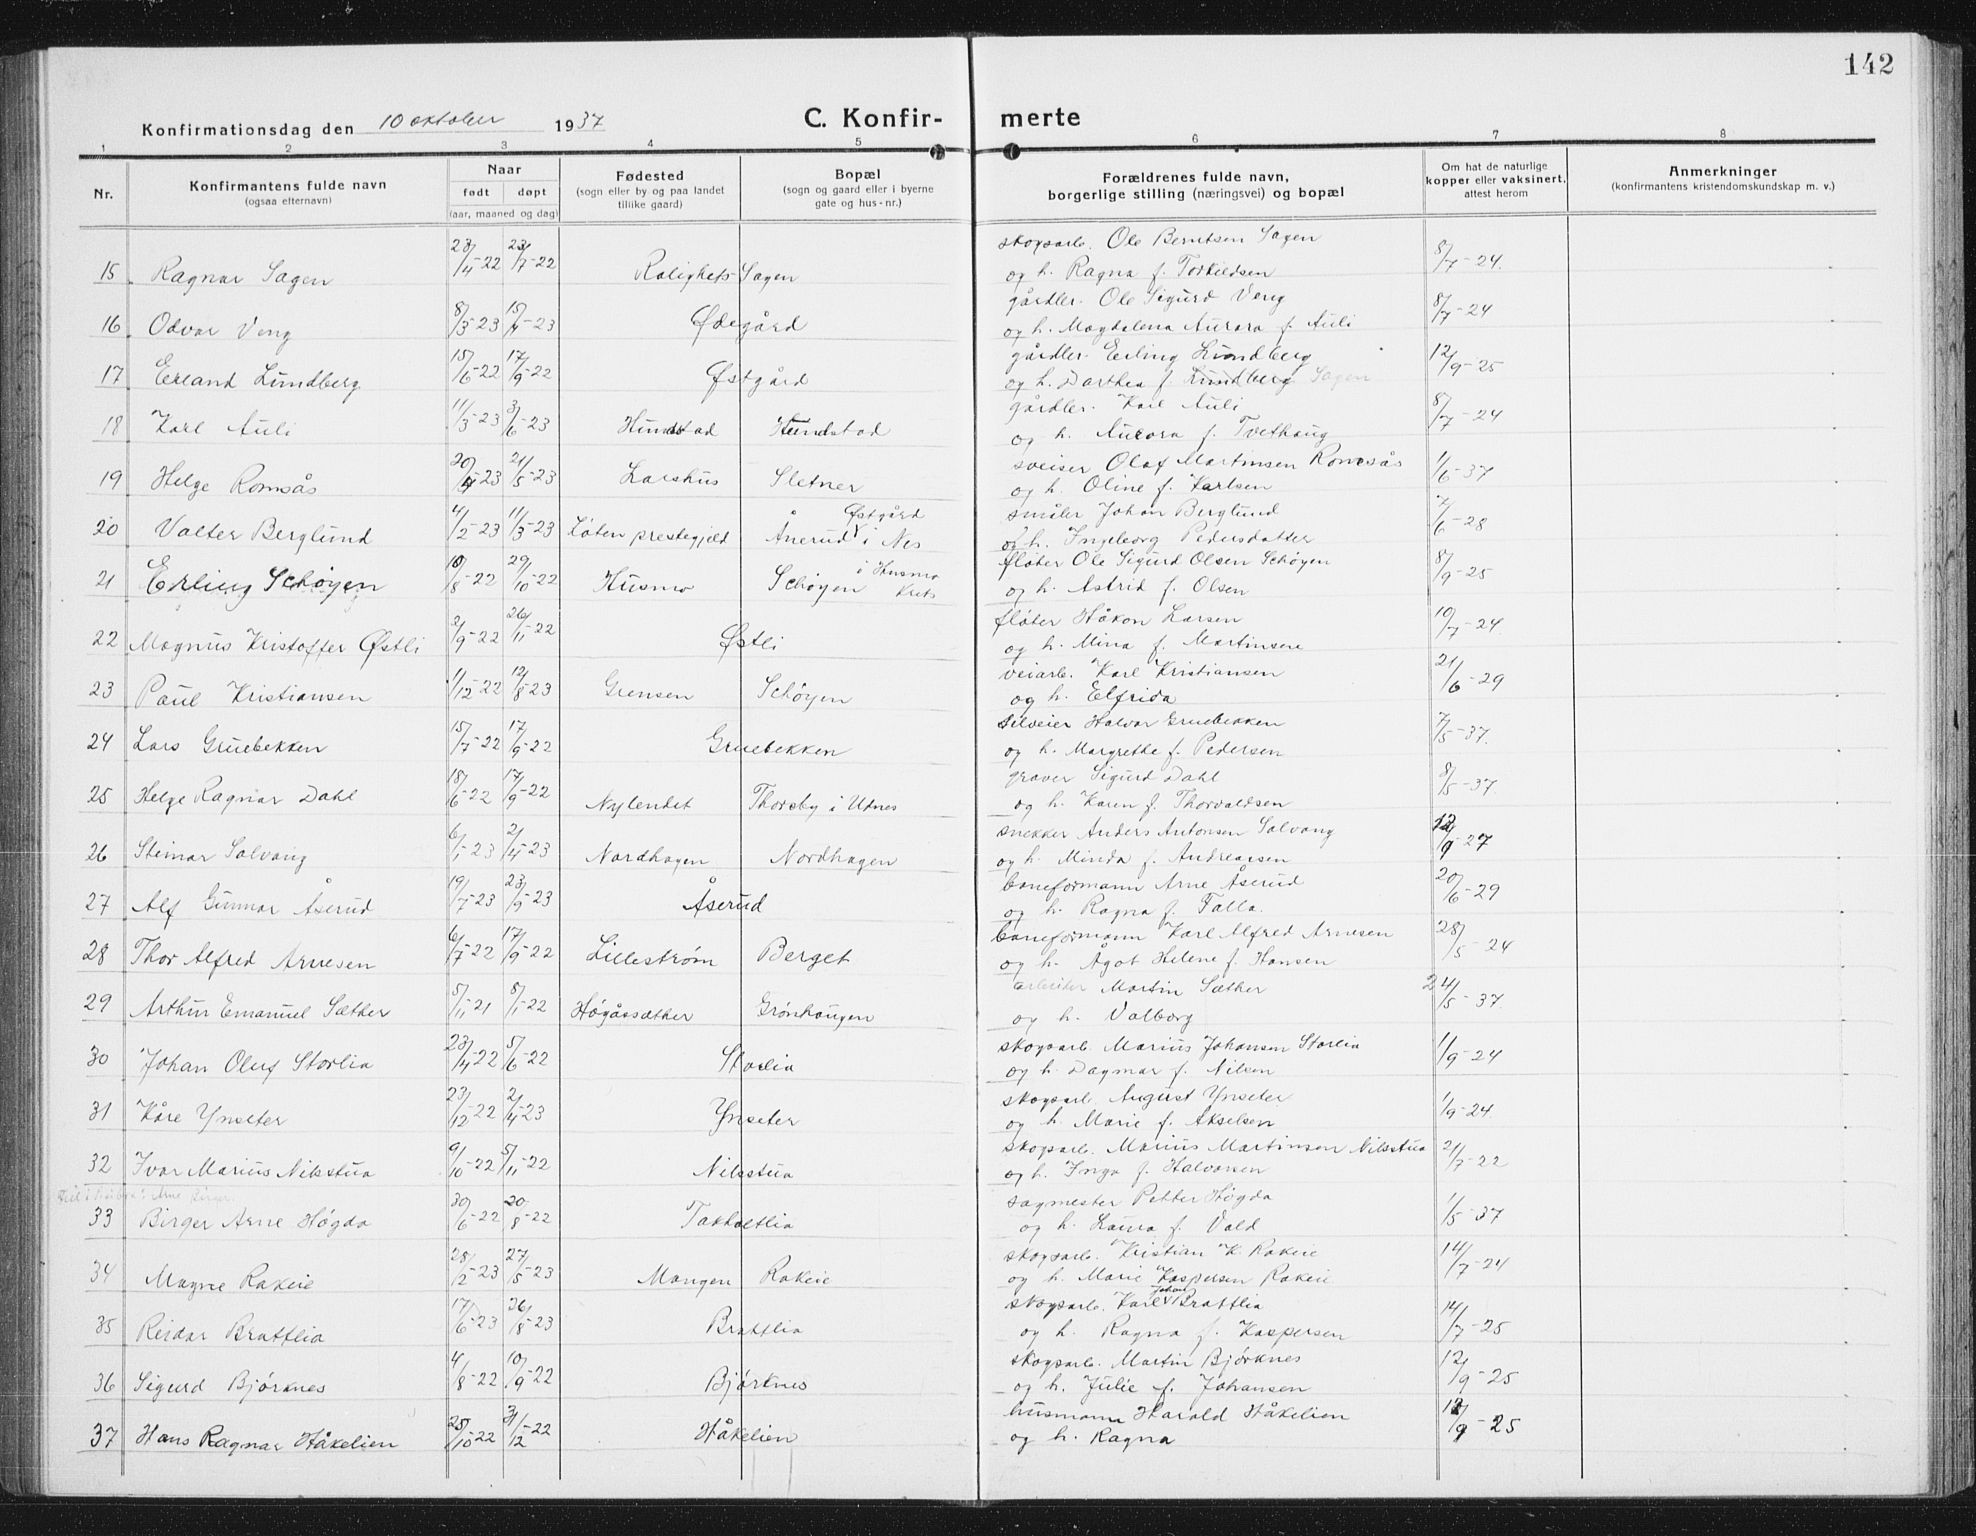 142
Konfirmationsdag den 10 oktober 1937 C. Konfir- merte
1 2 3 4 5 6 7 8
Nr. Konfirmantens fulde navn (ogsaa efternavn) Naar født døpt (aar, maaned og dag) Fødested (sogn eller by og paa landet tillike gaard) Bopæl (sogn og gaard eller i byerne gate og hus-nr.) Forældrenes fulde navn, borgerlige stilling (næringsvei) og bopæl Om hat de naturlige kopper eller vaksinert, attest herom Anmerkninger (konfirmantens kristendomskundskap m. v.)
skogsarb. Ole Berntsen Sagen
15 Ragnar Sagen 23/4-22 23/7-22 Rolighets-Sagen og h. Ragna f. Torkildsen 8/7-24.
gårdbr. Ole Sigurd Veng
16 Odvar Veng 8/3-23 15/4-23 Ødegård og h. Magdalena Aurora f. Auli 8/7-24
gårdbr. Erling Lundberg
17 Erland Lundberg 15/6-22 17/9-22 Østgård og h. Darthea f. Lundberg Sagen 12/9-25
gårdbr. Karl Auli
18 Karl Auli 11/3-23 3/6-23 Hundstad Hundstad og h. Aurora f. Tvethaug 8/7-24
sveiser Olaf Martinsen Romsås
19 Helge Romsås 20/4-23 21/5-23 Larshus Sletner og h. Oline f. Karlsen 1/6-37
småbr. Johan Berglund
20 Valter Berglund 4/2-23 11/3-23 Løten prestegjeld Ånerud i Østgård i Nes og h. Ingeborg Pedersdatter 7/6-28
fløter Ole Sigurd Olsen Schøyen
21 Erling Schøyen 10/8-22 29/10-22 Husmo Schøyen i Husmo krets og h. Astrid f. Olsen 8/9-25
fløter Håkon Larsen
22 Magnus Kristoffer Østli 2/9-22 26/11-22 Østli og h. Mina f. Martinsen 10/7-24
veiarb. Karl Kristiansen
23 Paul Kristiansen 11/12-22 12/8-23 Grensen Schøyen og h. Elfrida 21/6-29
selveier Halvor Gruebekken
24 Lars Gruebekken 15/7-22 17/9-22 Gruebekken og h. Margrethe f. Pedersen 7/5-37.
graver Sigurd Dahl
25 Helge Ragnar Dahl 18/6-22 17/9-22 Nylendet Thorsby i Udnes og h. Karen f. Thorvaldsen 8/5-37
snekker Anders Antonsen Solvang
26 Steinar Solvang 6/1-23 2/4-23 Nordhagen Nordhagen og h. Minda f. Andreassen 12/9-27
baneformann Arne Åserud
27 Alf Gunnar Åserud 19/7-23 23/9-23 Åserud og h. Ragna f. Falla. 20/6-29
baneformann Karl Alfred Arnesen
28 Thor Alfred Arnesen 6/7-22 17/9-22 Lillestrøm Berget og h. Ågot Helene f. Hansen 28/5-24
arbeiter Martin Sæther
29 Arthur Emanuel Sæther 5/11-21 8/1-22 Høgåssæther Grønhaugen og h. Valborg 24/5-37.
skogsarb. Marius Johansen Storlia
30 Johan Oluf Storlia 23/4-22 5/6-22 Storlia og h. Dagmar f. Nilsen 1/9-24
skogsarb. August Ynseter
31 Kåre Ynseter 23/12-22 2/4-23 Ynseter og h. Marie f. Akselsen 1/9-24
skogsarb. Marius Martinsen Nilsstua
32 Ivar Marius Nilsstua 9/10-22 5/11-22 Nilsstua og h. Inga f. Halvorsen 21/7-22
Arne Birger. sagmester Petter Høgda
33 Birger Arne Høgda 30/6-22 20/8-22 Takholtlia og h. Laura f. Vold 1/5-37
skogsarb. Kristian K. Rakeie
34 Magne Rakeie 28/2-23 27/5-23 Mangen Rakeie og h. Marie Kaspersen Rakeie 14/7-24
skogsarb. Karl Johan Brattlia
35 Reidar Brattlia 17/6-23 26/8-23 Brattlia og h. Ragna f. Kaspersen 14/7-25
skogsarb. Martin Bjørknes
36 Sigurd Bjørknes 4/8-22 10/9-22 Bjørknes og h. Julie f. Johansen 12/9-25
husmann Harald Håkelien
37 Hans Ragnar Håkelien 25/10-22 31/12-22 Håkelien og h. Ragna 12/9-25